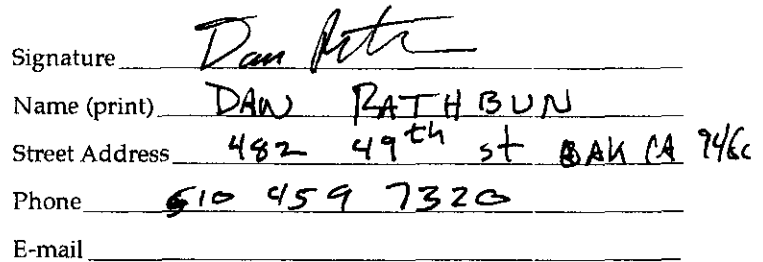 Signature Dan
Name (print) DAN RATHBUN
Street Address 482 49th st OAK CA
Phone 510 459 7320
E-mail